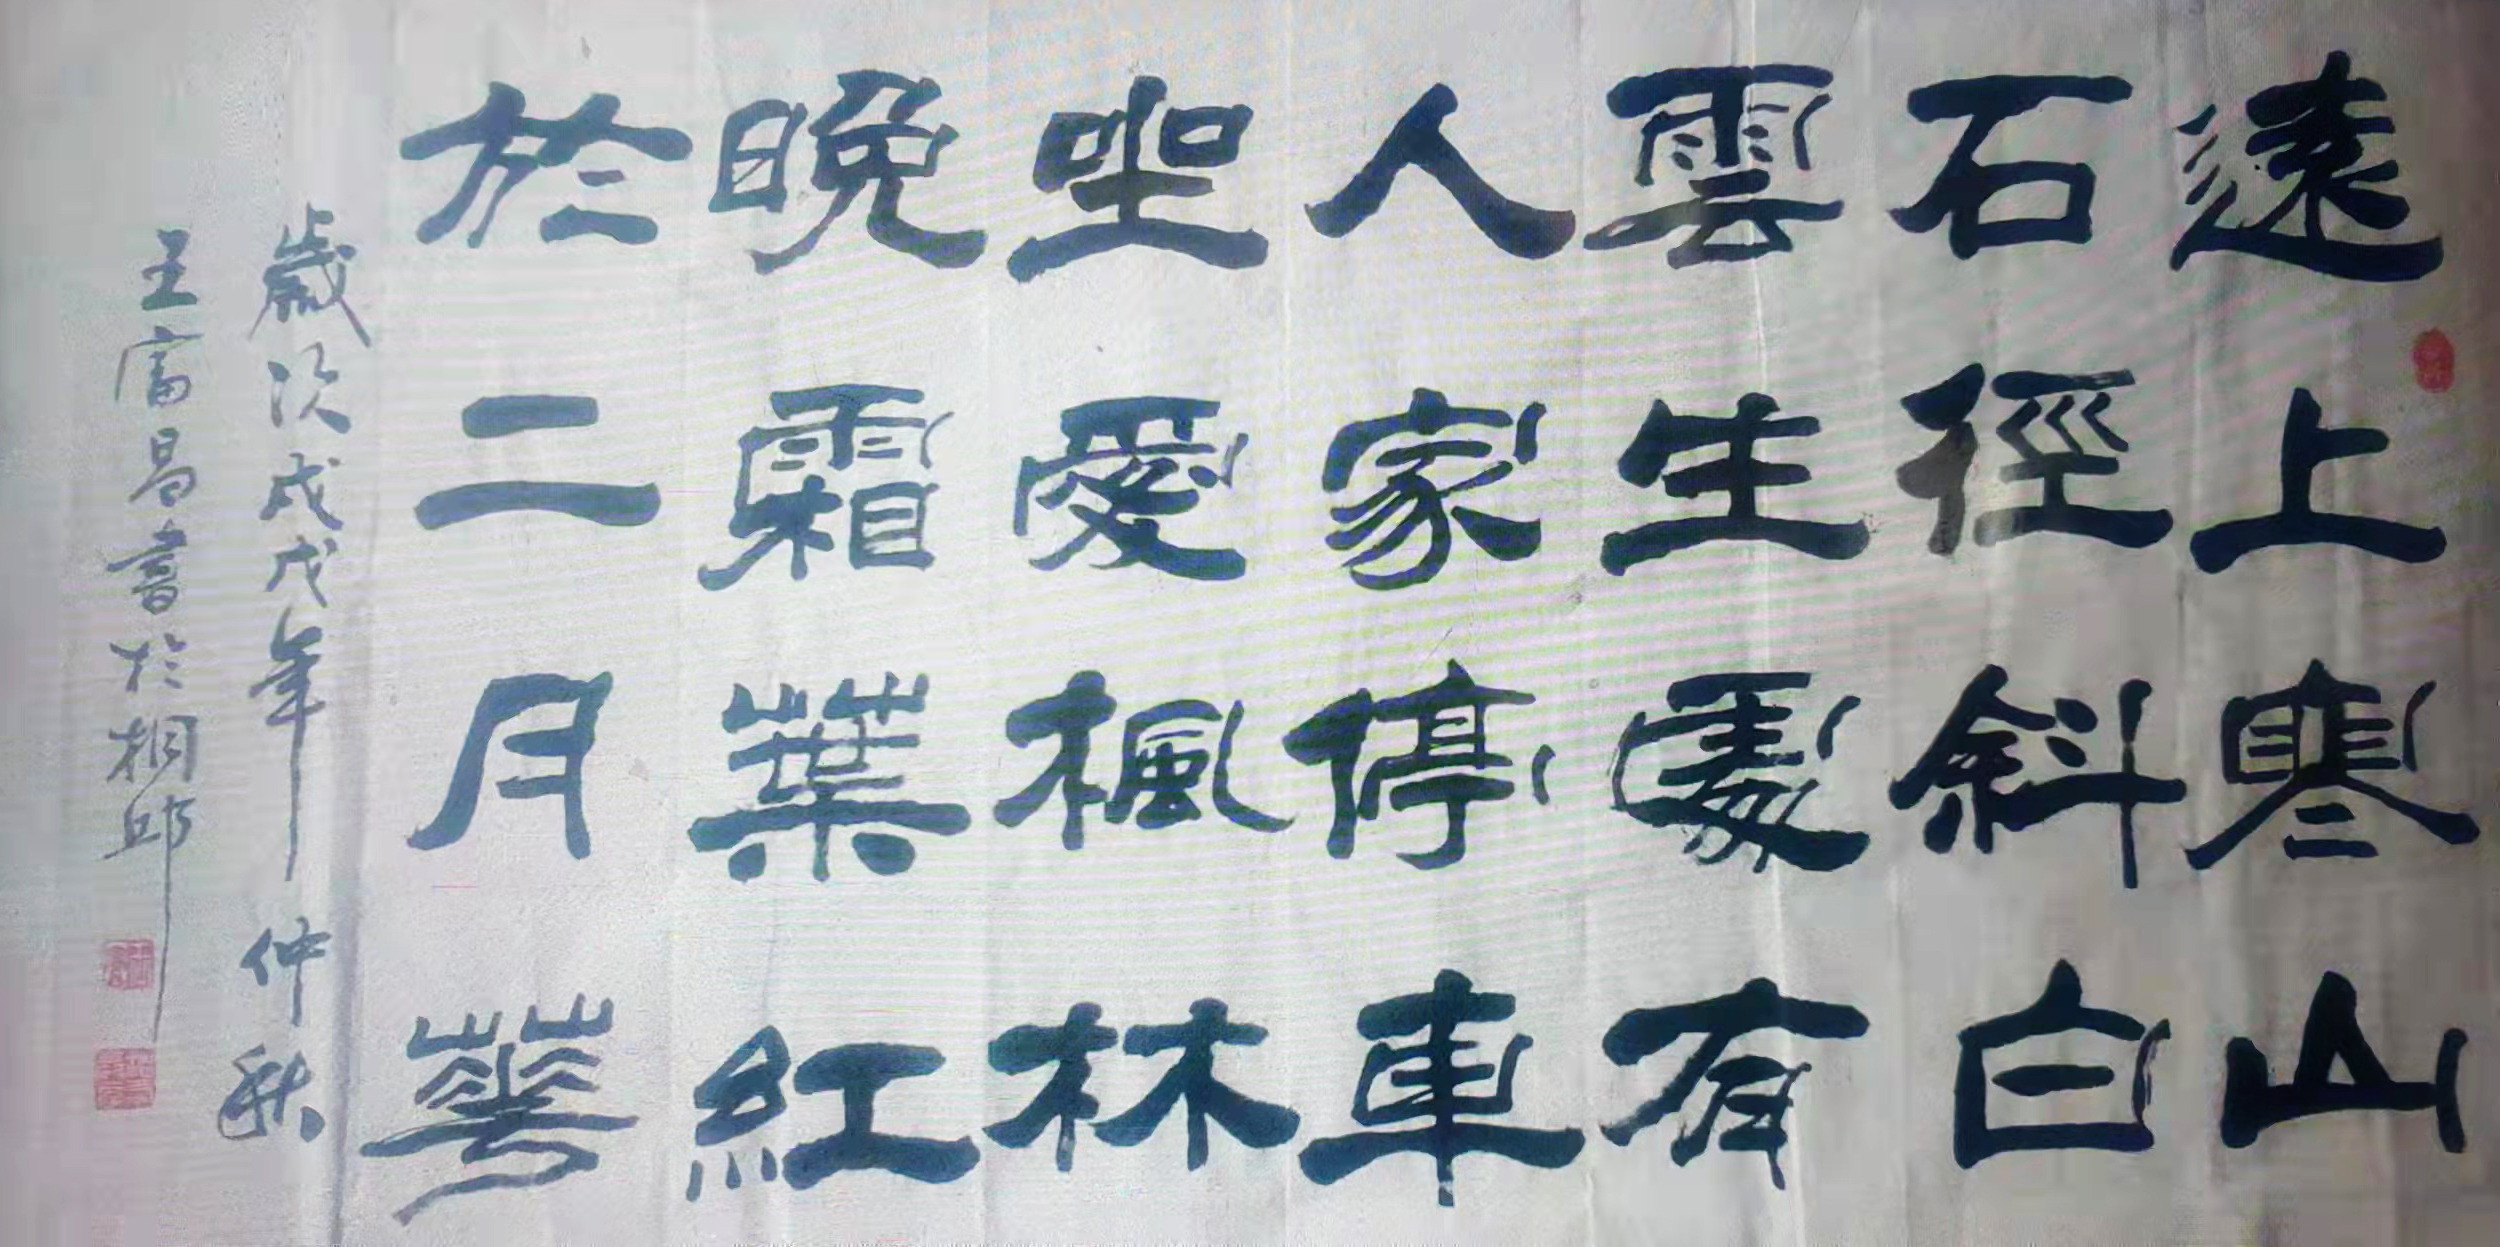 遠上寒山
石徑斜白
雲生處有
人家停車
坐愛楓林
晚霜葉紅
於二月花
歲次戊戌年仲秋
王富昌書於桐邱